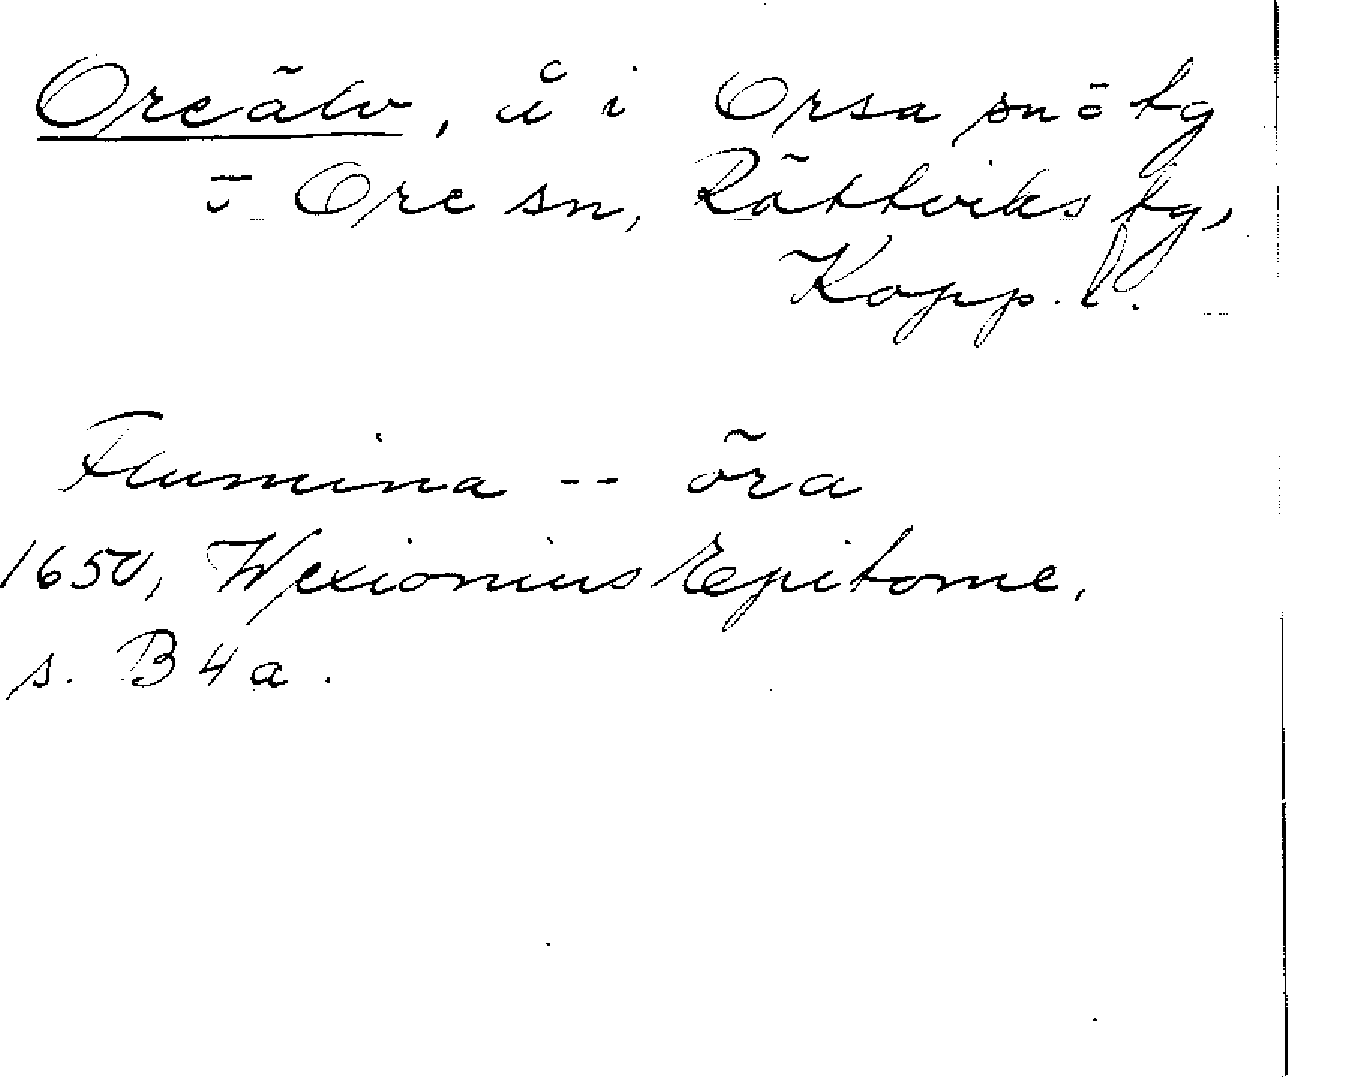 Oreälv, å i Orsa sn o tg
o Ore sn, Rättviks tg,
Kopp. l.
Flumina -- öra
1650, Wexionius Epitome,
s. B 4 a.